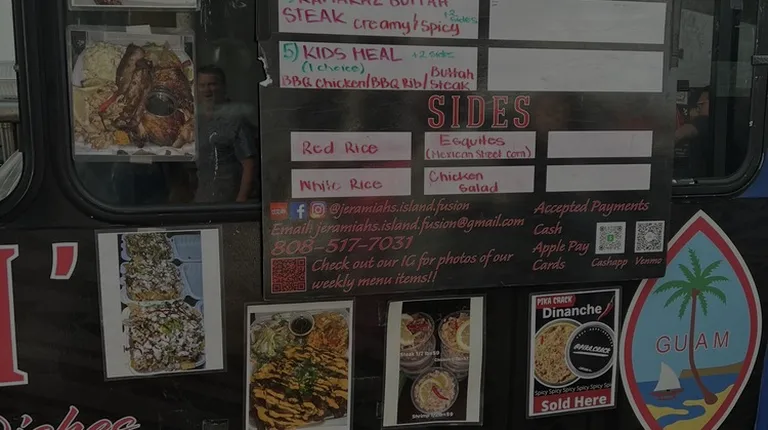 STEAK creamy/spicy +2 sides
5) KIDS MEAL +2 sides
(1 choice)
BBQ Chicken/BBQ Rib/Buttah Steak
SIDES
Red Rice
Esquites
(Mexican Street Corn)
White Rice
Chicken Salad
@jeramiahs.island.fusion
Email: jeramiahs.island.fusion@gmail.com
808-517-7031
Check out our IG for photos of our
weekly menu items!!
Accepted Payments
Cash
Apple Pay
Cards
Cashapp
Venmo
PIKA CRACK
Dinanche
PIKA CRACK
Spicy Spicy Spicy Spicy Spicy
Sold Here
GUAM
Dishes